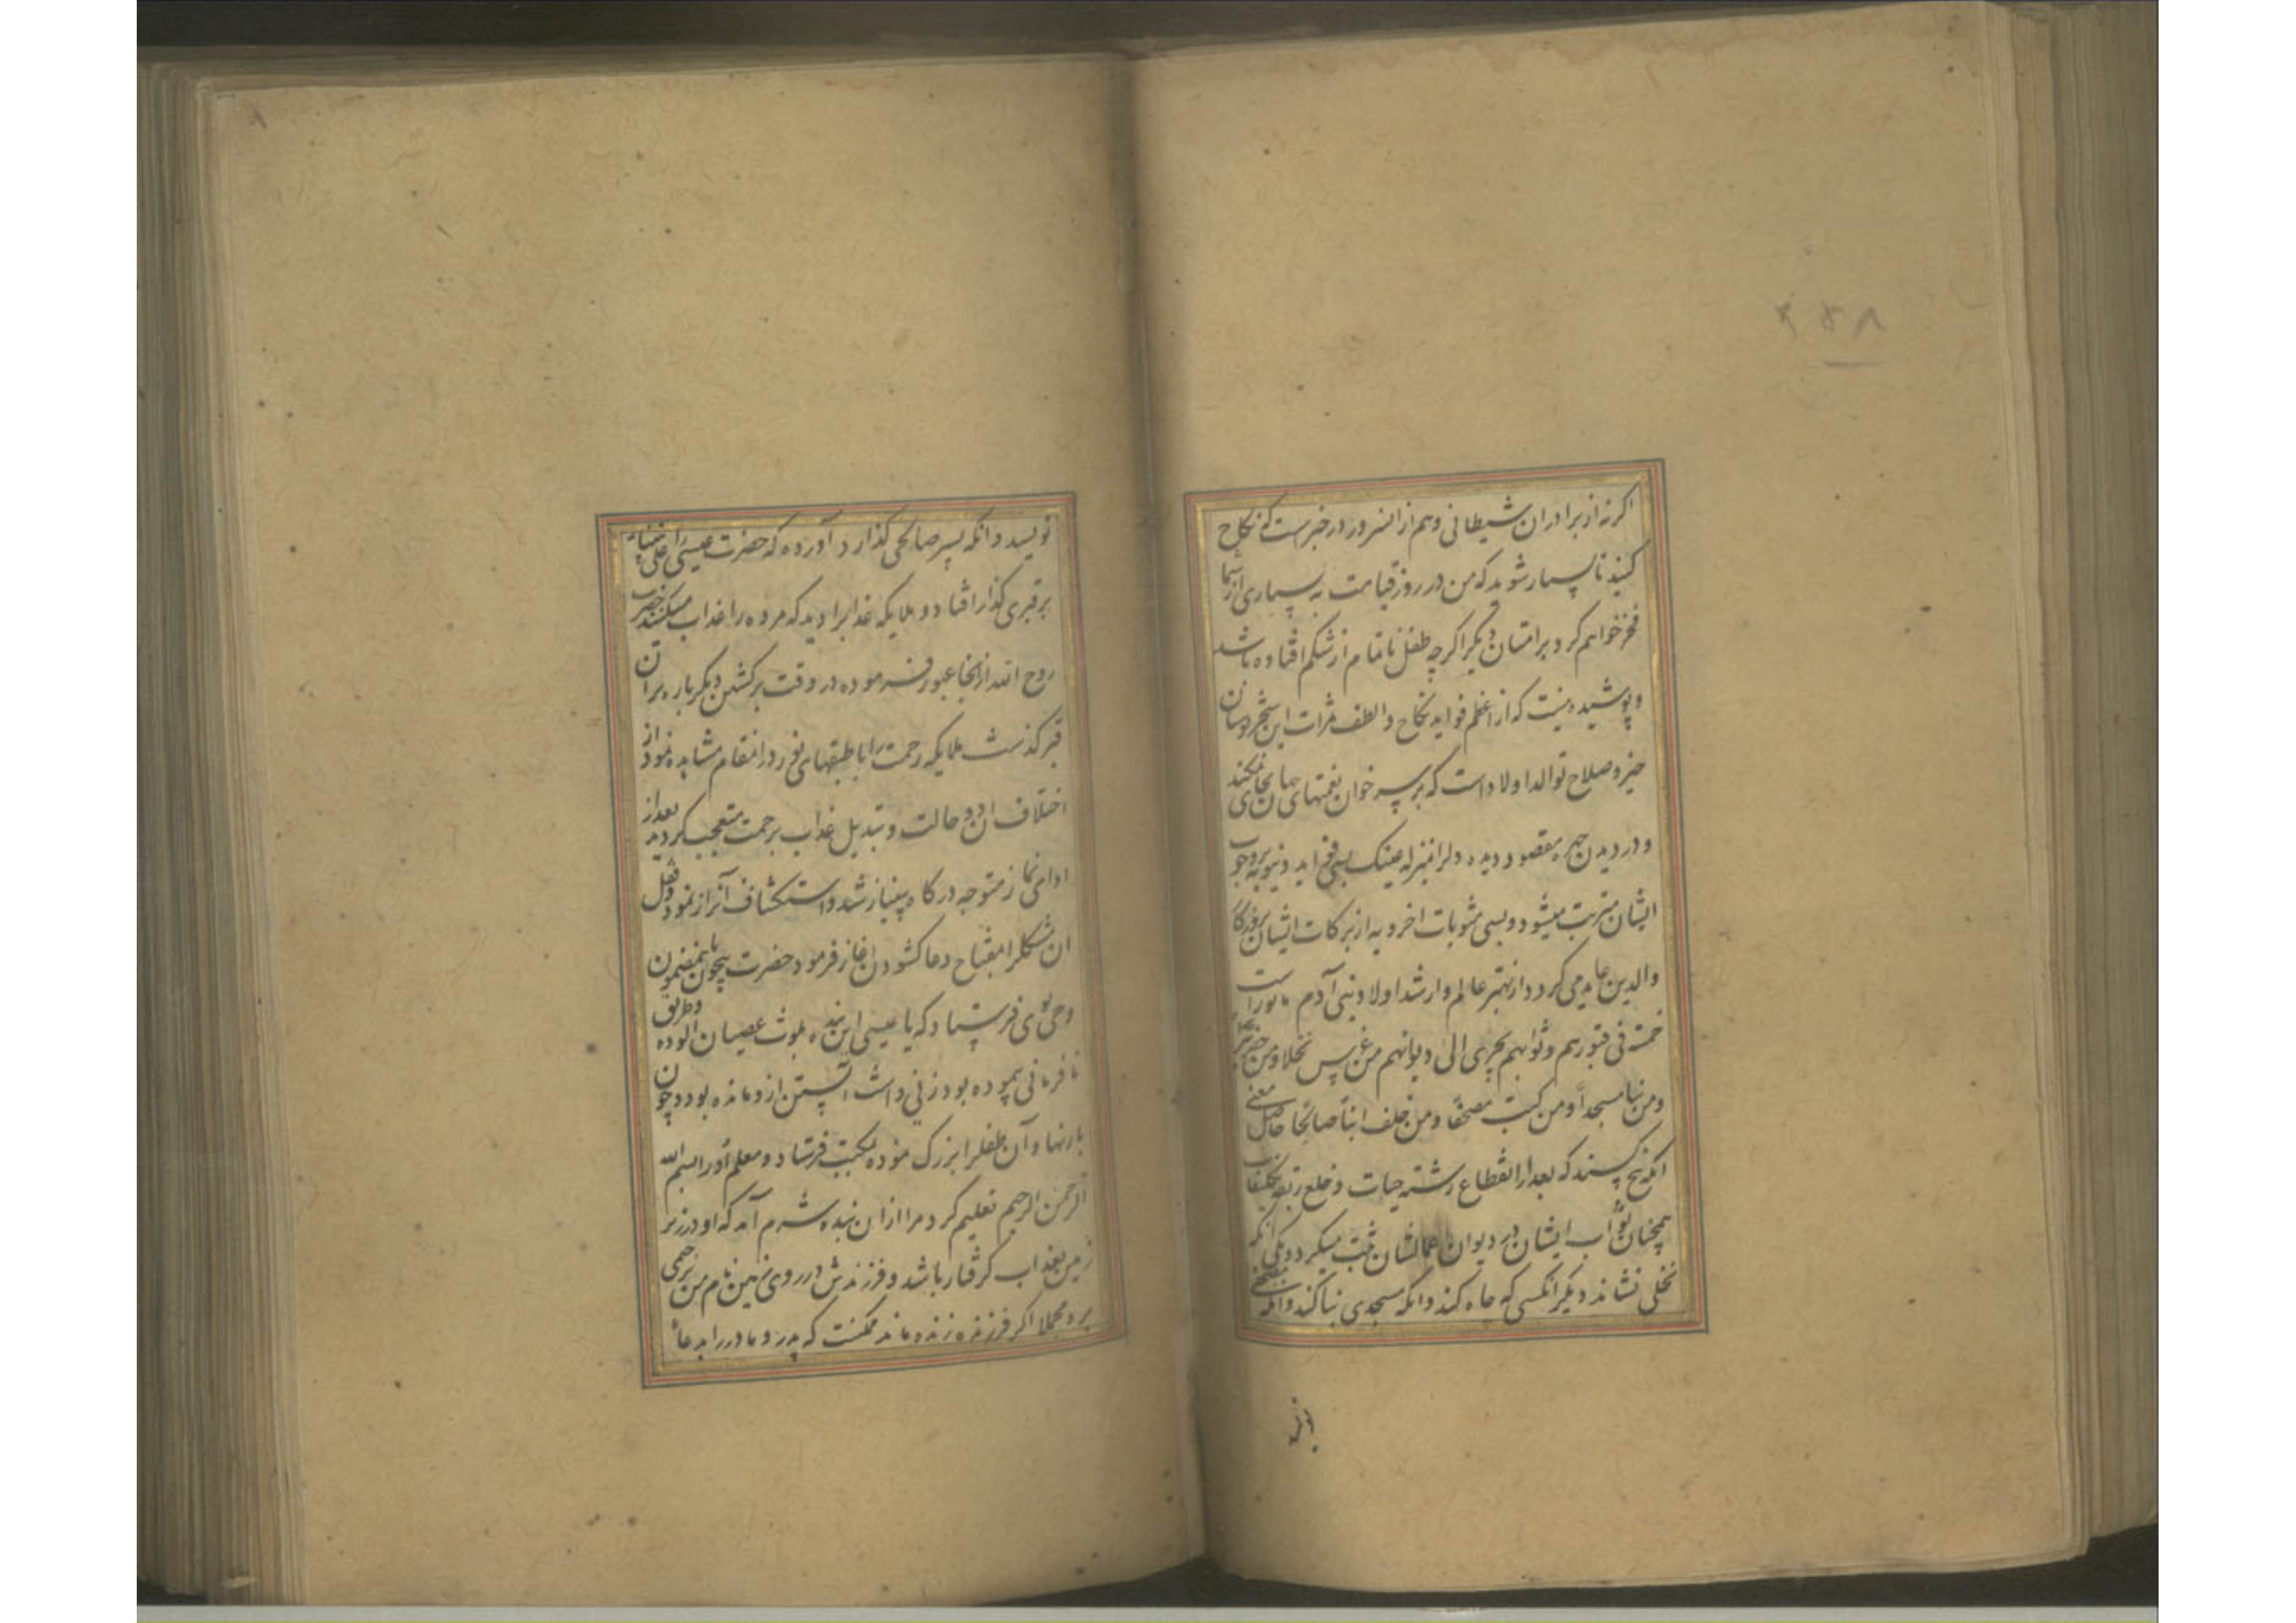 ۲۵۸
اکر نه از برادران شیطانی وهم از انسرور در خبرست که نکاح
کنید تا بسیار شوید که من در روز قیامت به بسیاری از شما
فخر خواهم کرد بر امتان دیکر اکر چه طفل ناتمام از شکم افتاده باشد
و پوشیده نیست که از اعظم فواید نکاح و الطف ثمرات این شجر دوستان
خیر و صلاح توالد اولاد است که بر سر خوان نعمتهای
و در دیدن چهره مقصود دیده دلرا بمنزله عینک بسی فواید دنیویه بر وجود
ایشان مترتب میشود و بسی مثوبات اخرویه از برکات ایشان بروزکار
والدین عاید می کردد از بهتر عالم و ارشد اولاد بنی آدم ماثور است
خمسة فی قبورهم و ثوابهم یجری الی دیوانهم من غرس نخلا و من حفر بئرا
و من بنا مسجداً و من کتب مصحفا و من خلف ابناً صالحًا حاصل معنی
انکه پنج کسند که بعد از انقطاع رشته حیات و خلع ربقه تکلیفات
همچنان ثواب ایشان در دیوان اعمالشان ثبت میکردد یکی انکه
نخلی نشاند دیکر انکسی که چاه کند و انکه مسجدی بنا کند و انکه مصحفی
نویسد
نویسد و انکه پسر صالحی کذارد آورده که حضرت عیسی را علی نبینا
بر قبری کذار افتاد و ملایکه عذابرا دید که مرده را عذاب میکنند حضرت
روح الله از انجا عبور فرموده در وقت برکشتن دیکر باره بر ان
قبر کذشت ملایکه رحمت را با طبقهای نور در انمقام مشاهده نمود از
اختلاف ان دو حالت و تبدیل عذاب برحمت متعجب کردید بعد از
ادای نماز متوجه درکاه بینیاز شد و استکشاف آنراز نمود و قفل
ان مشکلرا بمفتاح دعا کشودن اغاز فرمود حضرت بیچون باینمضمون
وحی بوی فرستاد که یا عیسی این بنده بلوث عصیان الوده و طریق
نافرمانی پیموده بود زنی داشت آبستن ازو مانده بود چون
بار نهاد آن طفلرا بزرک نموده بمکتب فرستاد و معلم او را بسم الله
الرحمن الرحیم تعلیم کرد مرا از ان بنده شرم آمد که او در زیر
زمین بعذاب کرفتار باشد و فرزندش در روی زمین نام من برحمی
برد مجملا اکر فرزند زنده ماند ممکنست که پدر و مادر را بدعا